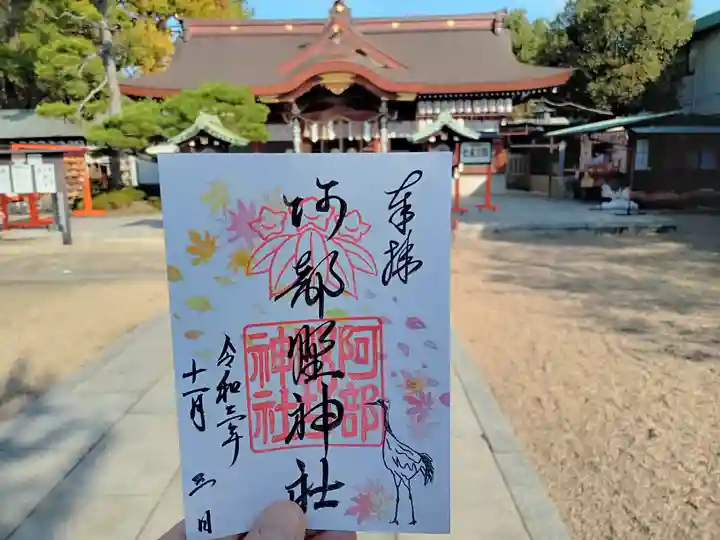 奉拝
阿部野神社
阿部
野
神社
令和二年
十一月
三日